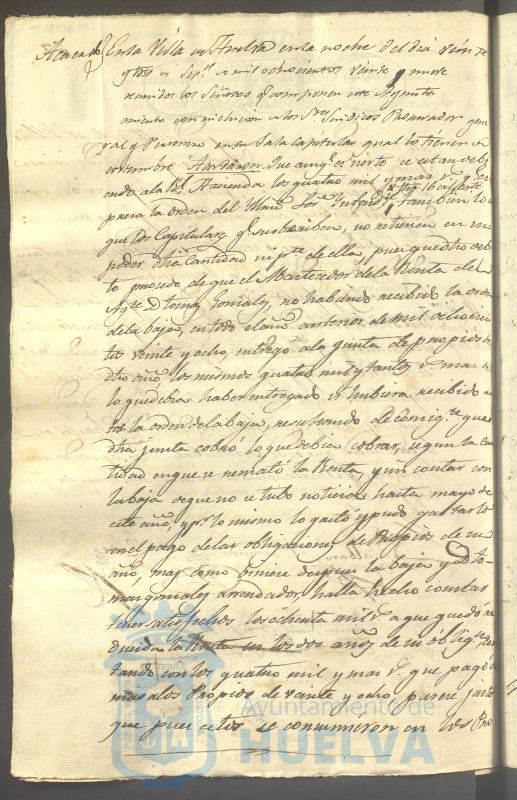 En la Villa de Huelva en la noche del dia veinte
y tres de Sepe. de mil ochocientos veinte y nueve
reunidos los Señores q. componen este Ayunta
miento con citacion a los Sres Sindicos Procurador gene
ral y Personero en su Sala capitular qual lo tienen de
costumbre Acordaron: Que aunq. es cierto se estan debi
endo a la Rl. Hacienda los quatro mil y mas rs. q. es
presa la orden del Sor. tambien lo es
que los Capitulares q. subscriben, no retienen en su
poder dha cantidad ni pte. de ella, pues que dho debi
to procede de que el Rematador de la Renta del
Agte. Dn Tomas Gonzalez, no habiendo recibido la orden
de la baja, en todo el año anterior de mil ochocien
tos veinte y ocho, entrego a la Junta de propios de
dho año los mismos quatro mil y tantos rs. mas de
lo que debia haber entregado si hubiera recibido an
tes la orden de la baja, resultando de consigte. que
dha junta cobró lo que debia cobrar, segun la can
tidad en que se remató la Renta y sin contar con
la baja de que no se tubo noticia hasta mayo de
este año, y pr. lo mismo lo gastó y pudo gastarlo
en el pago de las obligaciones de Propios de su
año, mas como viniere despues la baja y Dn To
mas Gonzalez arrendador, halla hecho constar
tener satisfechos los ochenta mil rs. a que quedó re
ducida la Renta en los dos años de su oblign. con
tando con los quatro mil y mas rs. que pagó de
mas a los Propios de veinte y ocho, parece justo
que pues estos se consumieron en los Pro
Ayuntamiento de
HUELVA